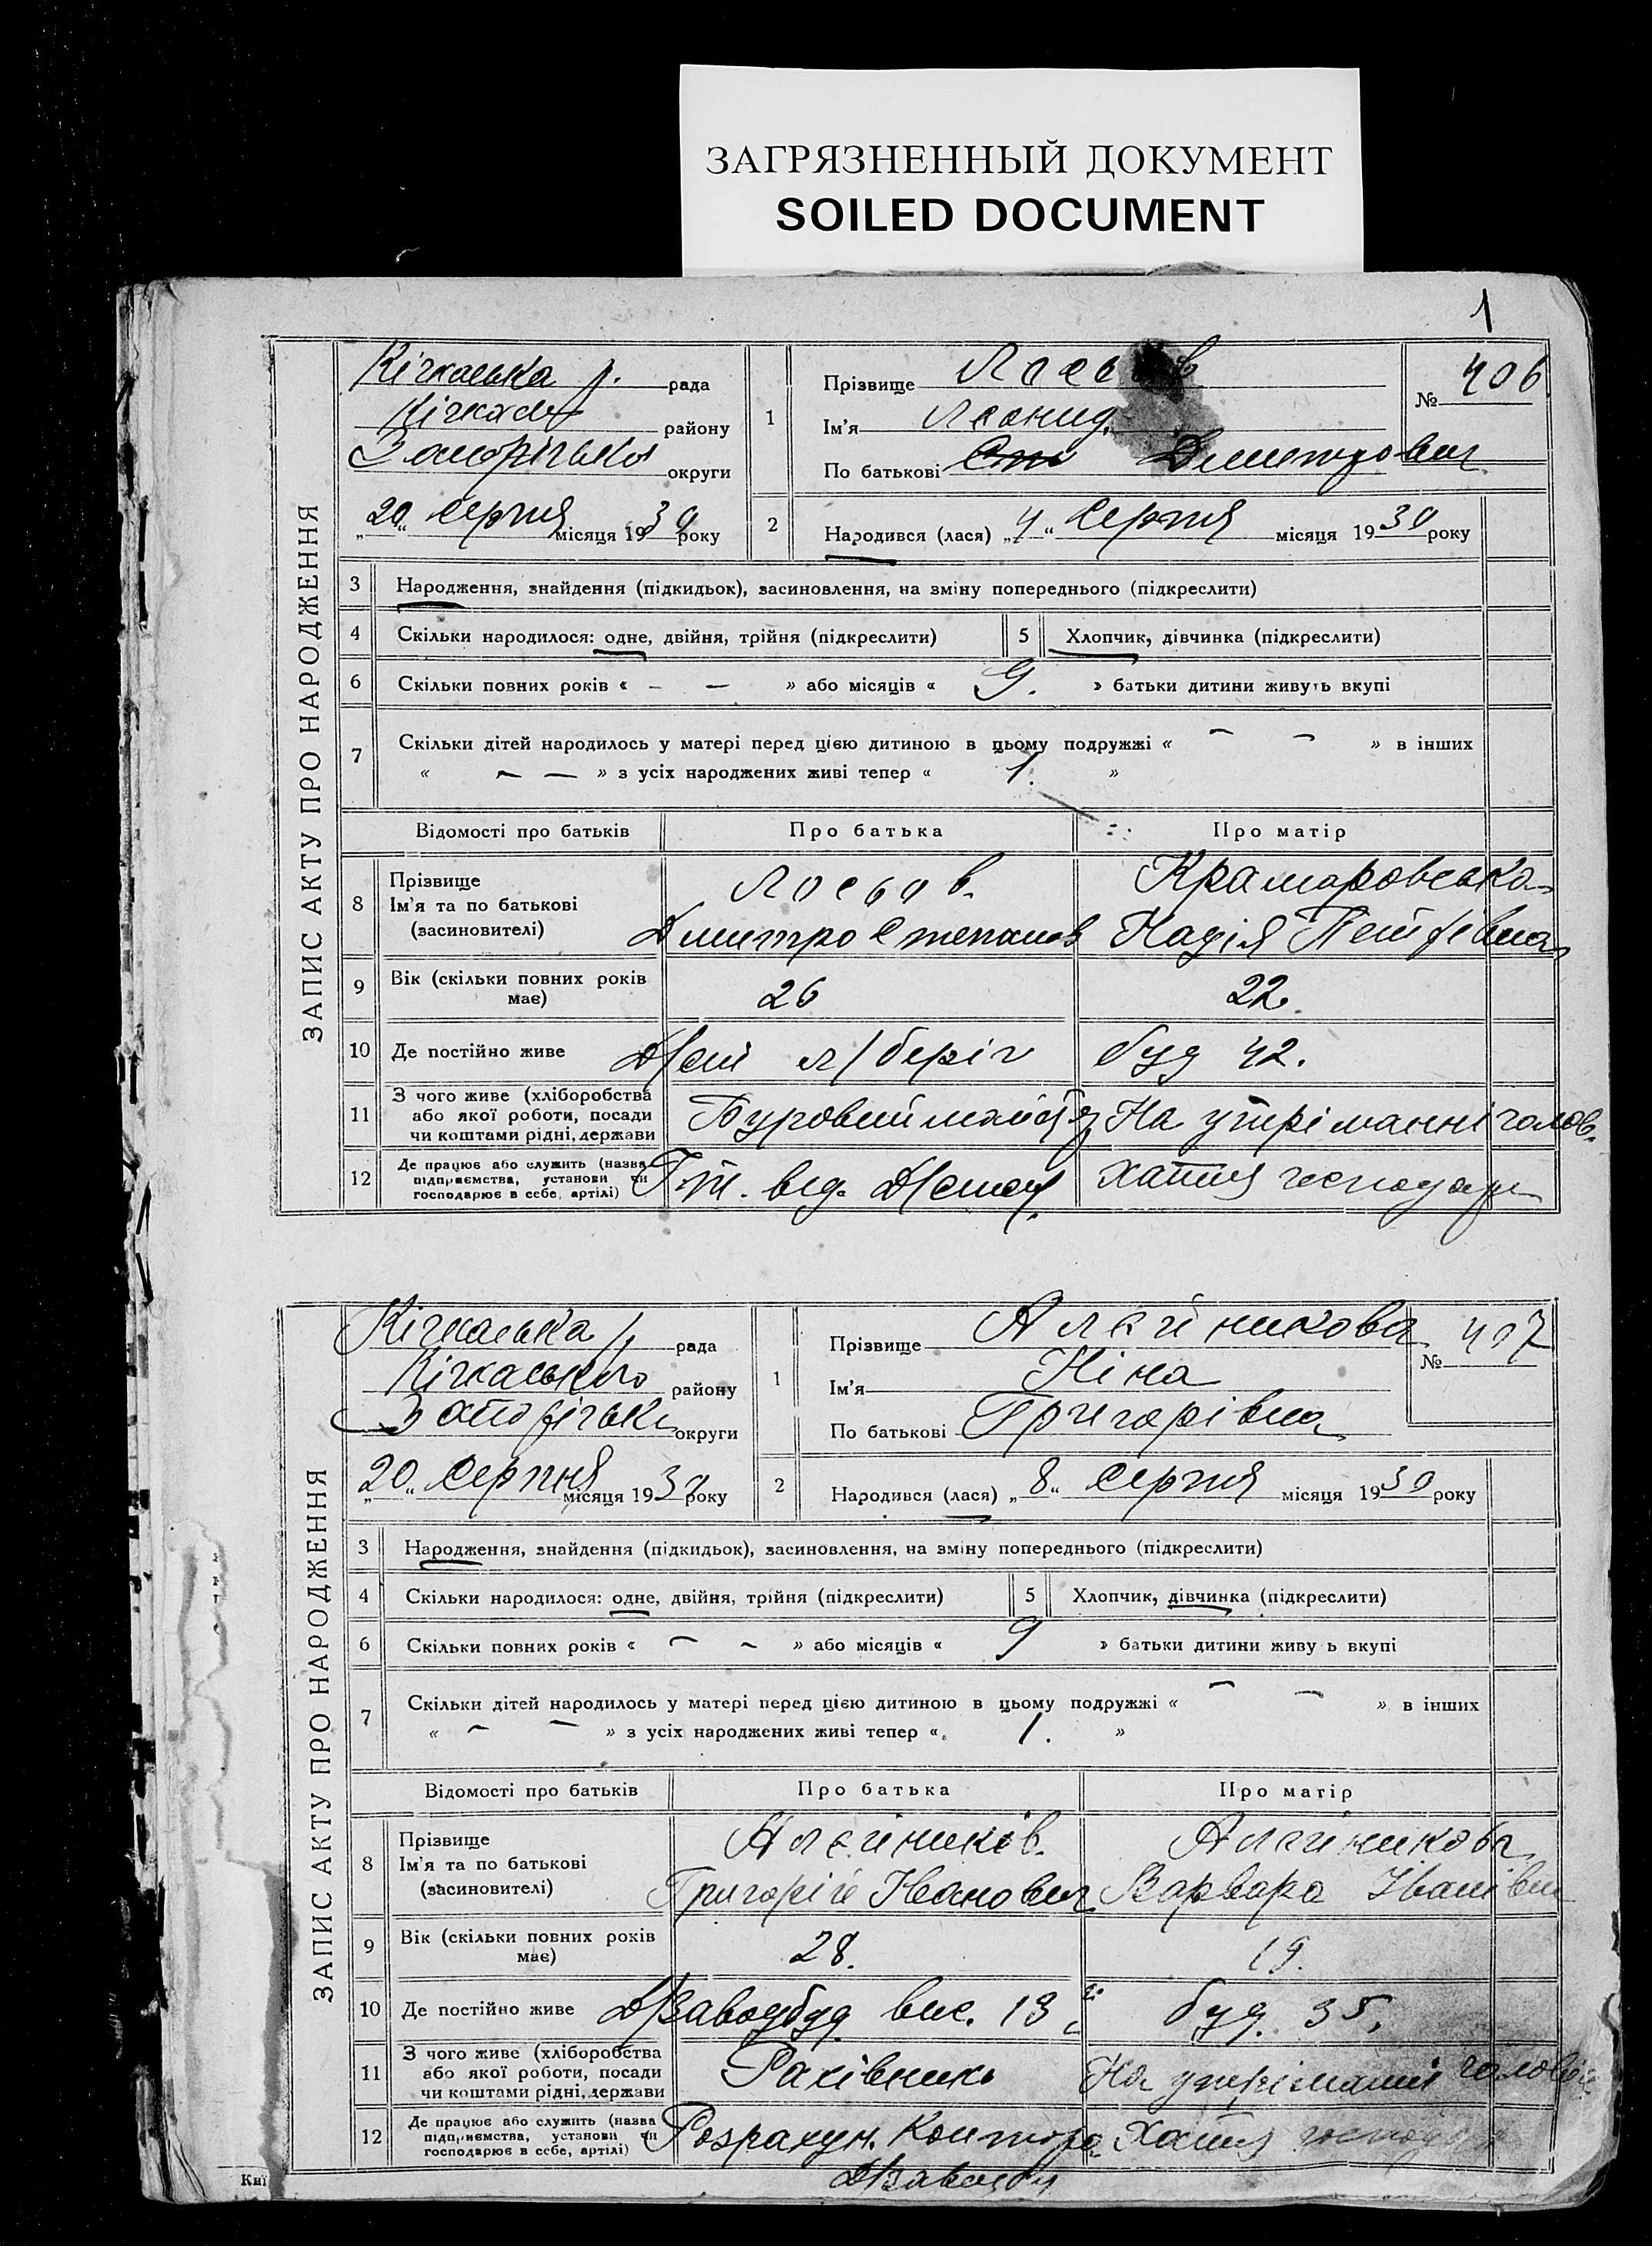 ЗАГРЯЗНЕННЫЙ ДОКУМЕНТ
SOILED DOCUMENT
1
ЗАПИС АКТУ ПРО НАРОДЖЕННЯ
Кічкаська р. рада
району
округи
„20“ Серпня місяця 1930 року
1
Прізвище Лосьов
Ім'я Леонид
По батькові Дмитрович
№ 406
2
Народився (лася) „4“ Серпня місяця 1930 року
3 Народження, знайдення (підкидьок), засиновлення, на зміну попереднього (підкреслити)
4 Скільки народилося: одне, двійня, трійня (підкреслити)
5 Хлопчик, дівчинка (підкреслити)
6 Скільки повних років « – – » або місяців « 9. » батьки дитини живуть вкупі
7 Скільки дітей народилось у матері перед цією дитиною в цьому подружжі « – – » в інших
« – – » з усіх народжених живі тепер « 1. »
Відомості про батьків Про батька Про матір
8 Прізвище
Ім'я та по батькові
(засиновителі)
Лосьов.
Дмитро Степанов
Крамаровська
Надія Петрівна
9 Вік (скільки повних років має) 26 22.
10 Де постійно живе л/беріг буд 42.
11 З чого живе (хліборобства
або якої роботи, посади
чи коштами рідні, держави
Буровий На утріманні чолов.
12 Де працює або служить (назва
підприємства, установи чи
господарює в себе, артілі)
від. хатня господар
ЗАПИС АКТУ ПРО НАРОДЖЕННЯ
Кічкаська р. рада
Кічкаського району
округи
„20“ Серпня місяця 1930 року
1
Прізвище Алєйникова
Ім'я Ніна
По батькові Григорівна
№ 407
2
Народився (лася) „8“ Серпня місяця 1930 року
3 Народження, знайдення (підкидьок), засиновлення, на зміну попереднього (підкреслити)
4 Скільки народилося: одне, двійня, трійня (підкреслити)
5 Хлопчик, дівчинка (підкреслити)
6 Скільки повних років « – – » або місяців « 9 » батьки дитини живу ь вкупі
7 Скільки дітей народилось у матері перед цією дитиною в цьому подружжі « – – » в інших
« – – » з усіх народжених живі тепер « 1. »
Відомості про батьків Про батька Про матір
8 Прізвище
Ім'я та по батькові
(засиновителі)
Алєйників.
Григорій Іванович
Алєйникова
Варвара Іванівн
9 Вік (скільки повних років має) 28. 19.
10 Де постійно живе Д/заводбуд вис. 13 буд. 35.
11 З чого живе (хліборобства
або якої роботи, посади
чи коштами рідні, держави
Рахівник На утріманні чоловік
12 Де працює або служить (назва
підприємства, установи чи
господарює в себе, артілі)
Розрахун. Контора Хатня господар
Киї